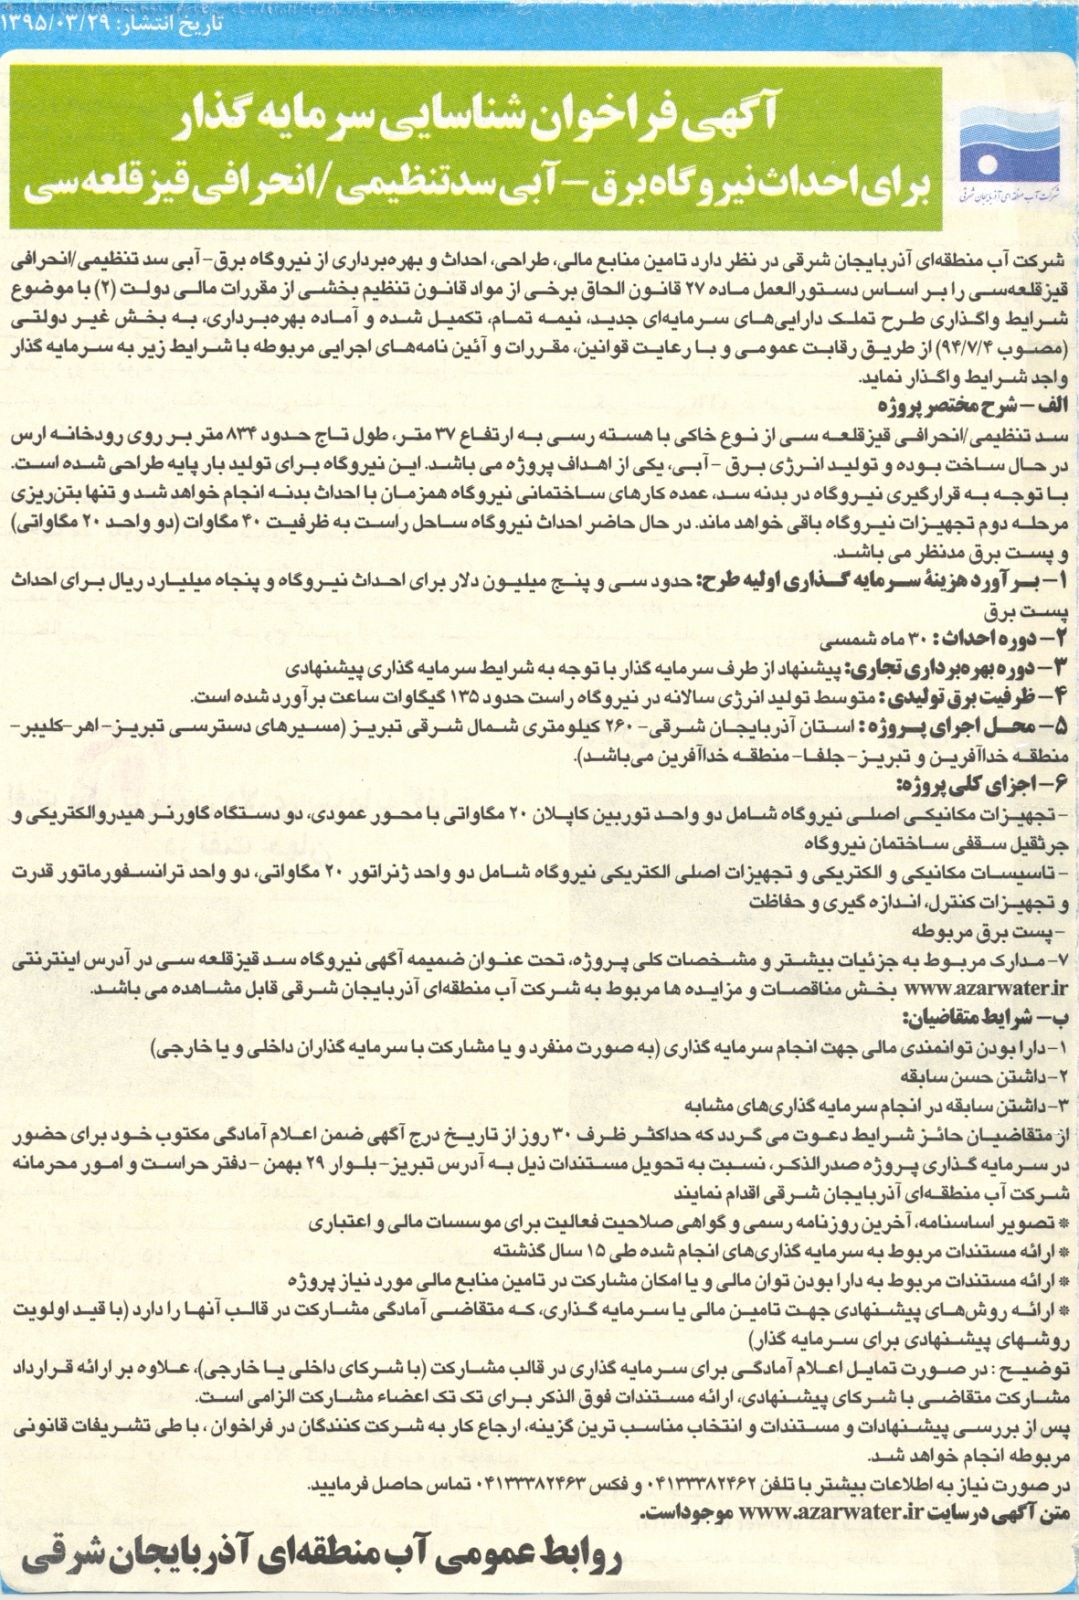 تاریخ انتشار: ۱۳۹۵/۰۳/۲۹
آگهی فراخوان شناسایی سرمایه گذار
برای احداث نیروگاه برق – آبی سد تنظیمی /انحرافی قیزقلعه سی
شرکت آب منطقه‌ای آذربایجان شرقی
شرکت آب منطقه‌ای آذربایجان شرقی در نظر دارد تامین منابع مالی، طراحی، احداث و بهره‌برداری از نیروگاه برق- آبی سد تنظیمی/انحرافی
قیزقلعه‌سی را بر اساس دستورالعمل ماده ۲۷ قانون الحاق برخی از مواد قانون تنظیم بخشی از مقررات مالی دولت (۲) با موضوع
شرایط واگذاری طرح تملک دارایی‌های سرمایه‌ای جدید، نیمه تمام، تکمیل شده و آماده بهره‌برداری، به بخش غیر دولتی
(مصوب ۹۴/۷/۴) از طریق رقابت عمومی و با رعایت قوانین، مقررات و آئین نامه‌های اجرایی مربوطه با شرایط زیر به سرمایه گذار
واجد شرایط واگذار نماید.
الف – شرح مختصر پروژه
سد تنظیمی/انحرافی قیزقلعه سی از نوع خاکی با هسته رسی به ارتفاع ۳۷ متر، طول تاج حدود ۸۳۴ متر بر روی رودخانه ارس
در حال ساخت بوده و تولید انرژی برق – آبی، یکی از اهداف پروژه می باشد. این نیروگاه برای تولید بار پایه طراحی شده است.
با توجه به قرارگیری نیروگاه در بدنه سد، عمده کارهای ساختمانی نیروگاه همزمان با احداث بدنه انجام خواهد شد و تنها بتن‌ریزی
مرحله دوم تجهیزات نیروگاه باقی خواهد ماند. در حال حاضر احداث نیروگاه ساحل راست به ظرفیت ۴۰ مگاوات (دو واحد ۲۰ مگاواتی)
و پست برق مدنظر می باشد.
۱– برآورد هزینهٔ سرمایه گذاری اولیه طرح: حدود سی و پنج میلیون دلار برای احداث نیروگاه و پنجاه میلیارد ریال برای احداث
پست برق
۲– دوره احداث : ۳۰ ماه شمسی
۳– دوره بهره‌برداری تجاری: پیشنهاد از طرف سرمایه گذار با توجه به شرایط سرمایه گذاری پیشنهادی
۴– ظرفیت برق تولیدی : متوسط تولید انرژی سالانه در نیروگاه راست حدود ۱۳۵ گیگاوات ساعت برآورد شده است.
۵– محل اجرای پروژه : استان آذربایجان شرقی- ۲۶۰ کیلومتری شمال شرقی تبریز (مسیرهای دسترسی تبریز- اهر-کلیبر-
منطقه خداآفرین و تبریز- جلفا- منطقه خداآفرین می‌باشد).
۶– اجزای کلی پروژه:
- تجهیزات مکانیکی اصلی نیروگاه شامل دو واحد توربین کاپلان ۲۰ مگاواتی با محور عمودی، دو دستگاه گاورنر هیدروالکتریکی و
جرثقیل سقفی ساختمان نیروگاه
- تاسیسات مکانیکی و الکتریکی و تجهیزات اصلی الکتریکی نیروگاه شامل دو واحد ژنراتور ۲۰ مگاواتی، دو واحد ترانسفورماتور قدرت
و تجهیزات کنترل، اندازه گیری و حفاظت
-پست برق مربوطه
۷- مدارک مربوط به جزئیات بیشتر و مشخصات کلی پروژه، تحت عنوان ضمیمه آگهی نیروگاه سد قیزقلعه سی در آدرس اینترنتی
www.azarwater.ir بخش مناقصات و مزایده ها مربوط به شرکت آب منطقه‌ای آذربایجان شرقی قابل مشاهده می باشد.
ب– شرایط متقاضیان:
۱-دارا بودن توانمندی مالی جهت انجام سرمایه گذاری (به صورت منفرد و یا مشارکت با سرمایه گذاران داخلی و یا خارجی)
۲-داشتن حسن سابقه
۳-داشتن سابقه در انجام سرمایه گذاری‌های مشابه
از متقاضیان حائز شرایط دعوت می گردد که حداکثر ظرف ۳۰ روز از تاریخ درج آگهی ضمن اعلام آمادگی مکتوب خود برای حضور
در سرمایه گذاری پروژه صدرالذکر، نسبت به تحویل مستندات ذیل به آدرس تبریز- بلوار ۲۹ بهمن -دفتر حراست و امور محرمانه
شرکت آب منطقه‌ای آذربایجان شرقی اقدام نمایند
* تصویر اساسنامه، آخرین روزنامه رسمی و گواهی صلاحیت فعالیت برای موسسات مالی و اعتباری
* ارائه مستندات مربوط به سرمایه گذاری‌های انجام شده طی ۱۵ سال گذشته
* ارائه مستندات مربوط به دارا بودن توان مالی و یا امکان مشارکت در تامین منابع مالی مورد نیاز پروژه
* ارائه روش‌های پیشنهادی جهت تامین مالی یا سرمایه گذاری، که متقاضی آمادگی مشارکت در قالب آنها را دارد (با قید اولویت
روشهای پیشنهادی برای سرمایه گذار)
توضیح : در صورت تمایل اعلام آمادگی برای سرمایه گذاری در قالب مشارکت (با شرکای داخلی یا خارجی)، علاوه بر ارائه قرارداد
مشارکت متقاضی با شرکای پیشنهادی، ارائه مستندات فوق الذکر برای تک تک اعضاء مشارکت الزامی است.
پس از بررسی پیشنهادات و مستندات و انتخاب مناسب ترین گزینه، ارجاع کار به شرکت کنندگان در فراخوان ، با طی تشریفات قانونی
مربوطه انجام خواهد شد.
در صورت نیاز به اطلاعات بیشتر با تلفن ۰۴۱۳۳۳۸۲۴۶۲ و فکس ۰۴۱۳۳۳۸۲۴۶۳ تماس حاصل فرمایید.
متن آگهی در سایت www.azarwater.ir موجوداست.
روابط عمومی آب منطقه‌ای آذربایجان شرقی